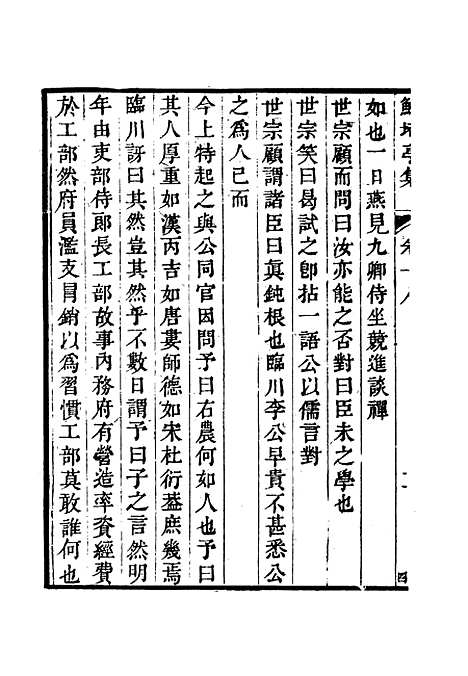 鮚埼亭集 卷十八 四
如也一日燕見九卿侍坐競進談禪
世宗顧而問曰汝亦能之否對曰臣未之學也
世宗笑曰曷試之卽拈一語公以儒言對
世宗顧謂諸臣曰眞鈍根也臨川李公早貴不甚悉公
之爲人已而
今上特起之與公同官因問予曰右農何如人也予曰
其人厚重如漢丙吉如唐婁師德如宋杜衍葢庶幾焉
臨川訝曰其然豈其然乎不數日謂予曰子之言然明
年由吏部侍郎長工部故事內務府有營造率資經費
於工部然府員濫支冒銷以爲習慣工部莫敢誰何也